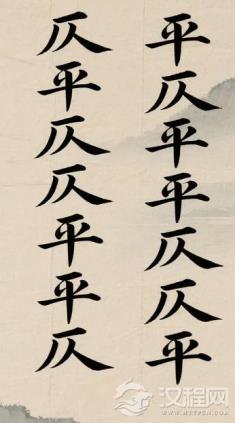 平仄平平仄仄平
仄平仄仄平平仄
汉程网
HTTPCN.COM